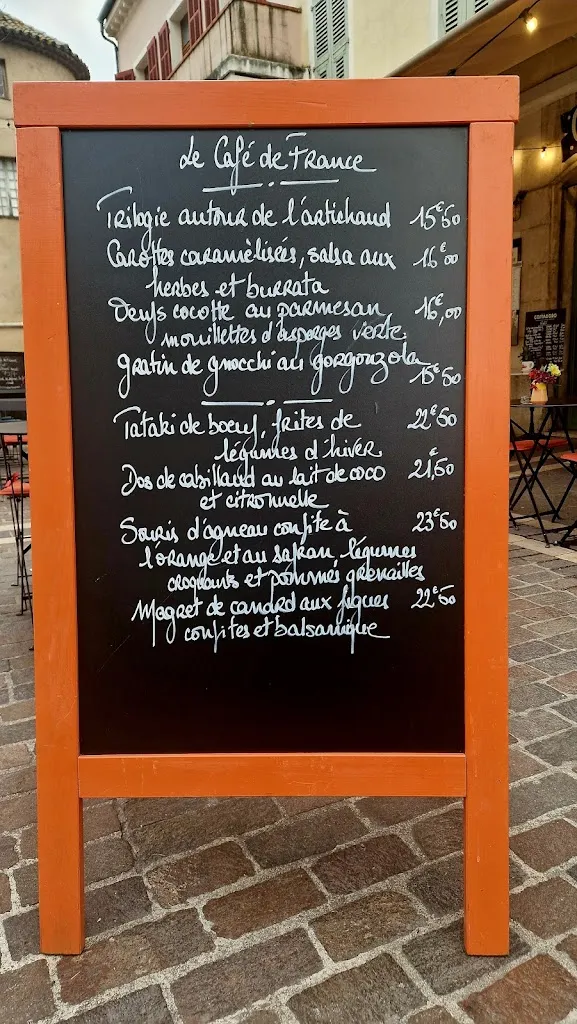 Le Café de France
Trilogie autour de l'artichaud 15€50
Carottes caramèlisées, salsa aux 16€00
herbes et burrata
Oeufs cocotte au parmesan 16€,00
mouillettes d'asperges verte
gratin de gnocchi au gorgonzola
15€50
Tataki de boeuf, frites de 22€50
légumes d'hiver
Dos de cabillaud au lait de coco 21,50
et citronnelle
Souris d'agneau confite à 23€50
l'orange et au safran, légumes
croquants et pommes grenailles
Magret de canard aux figues 22€50
confites et balsamique